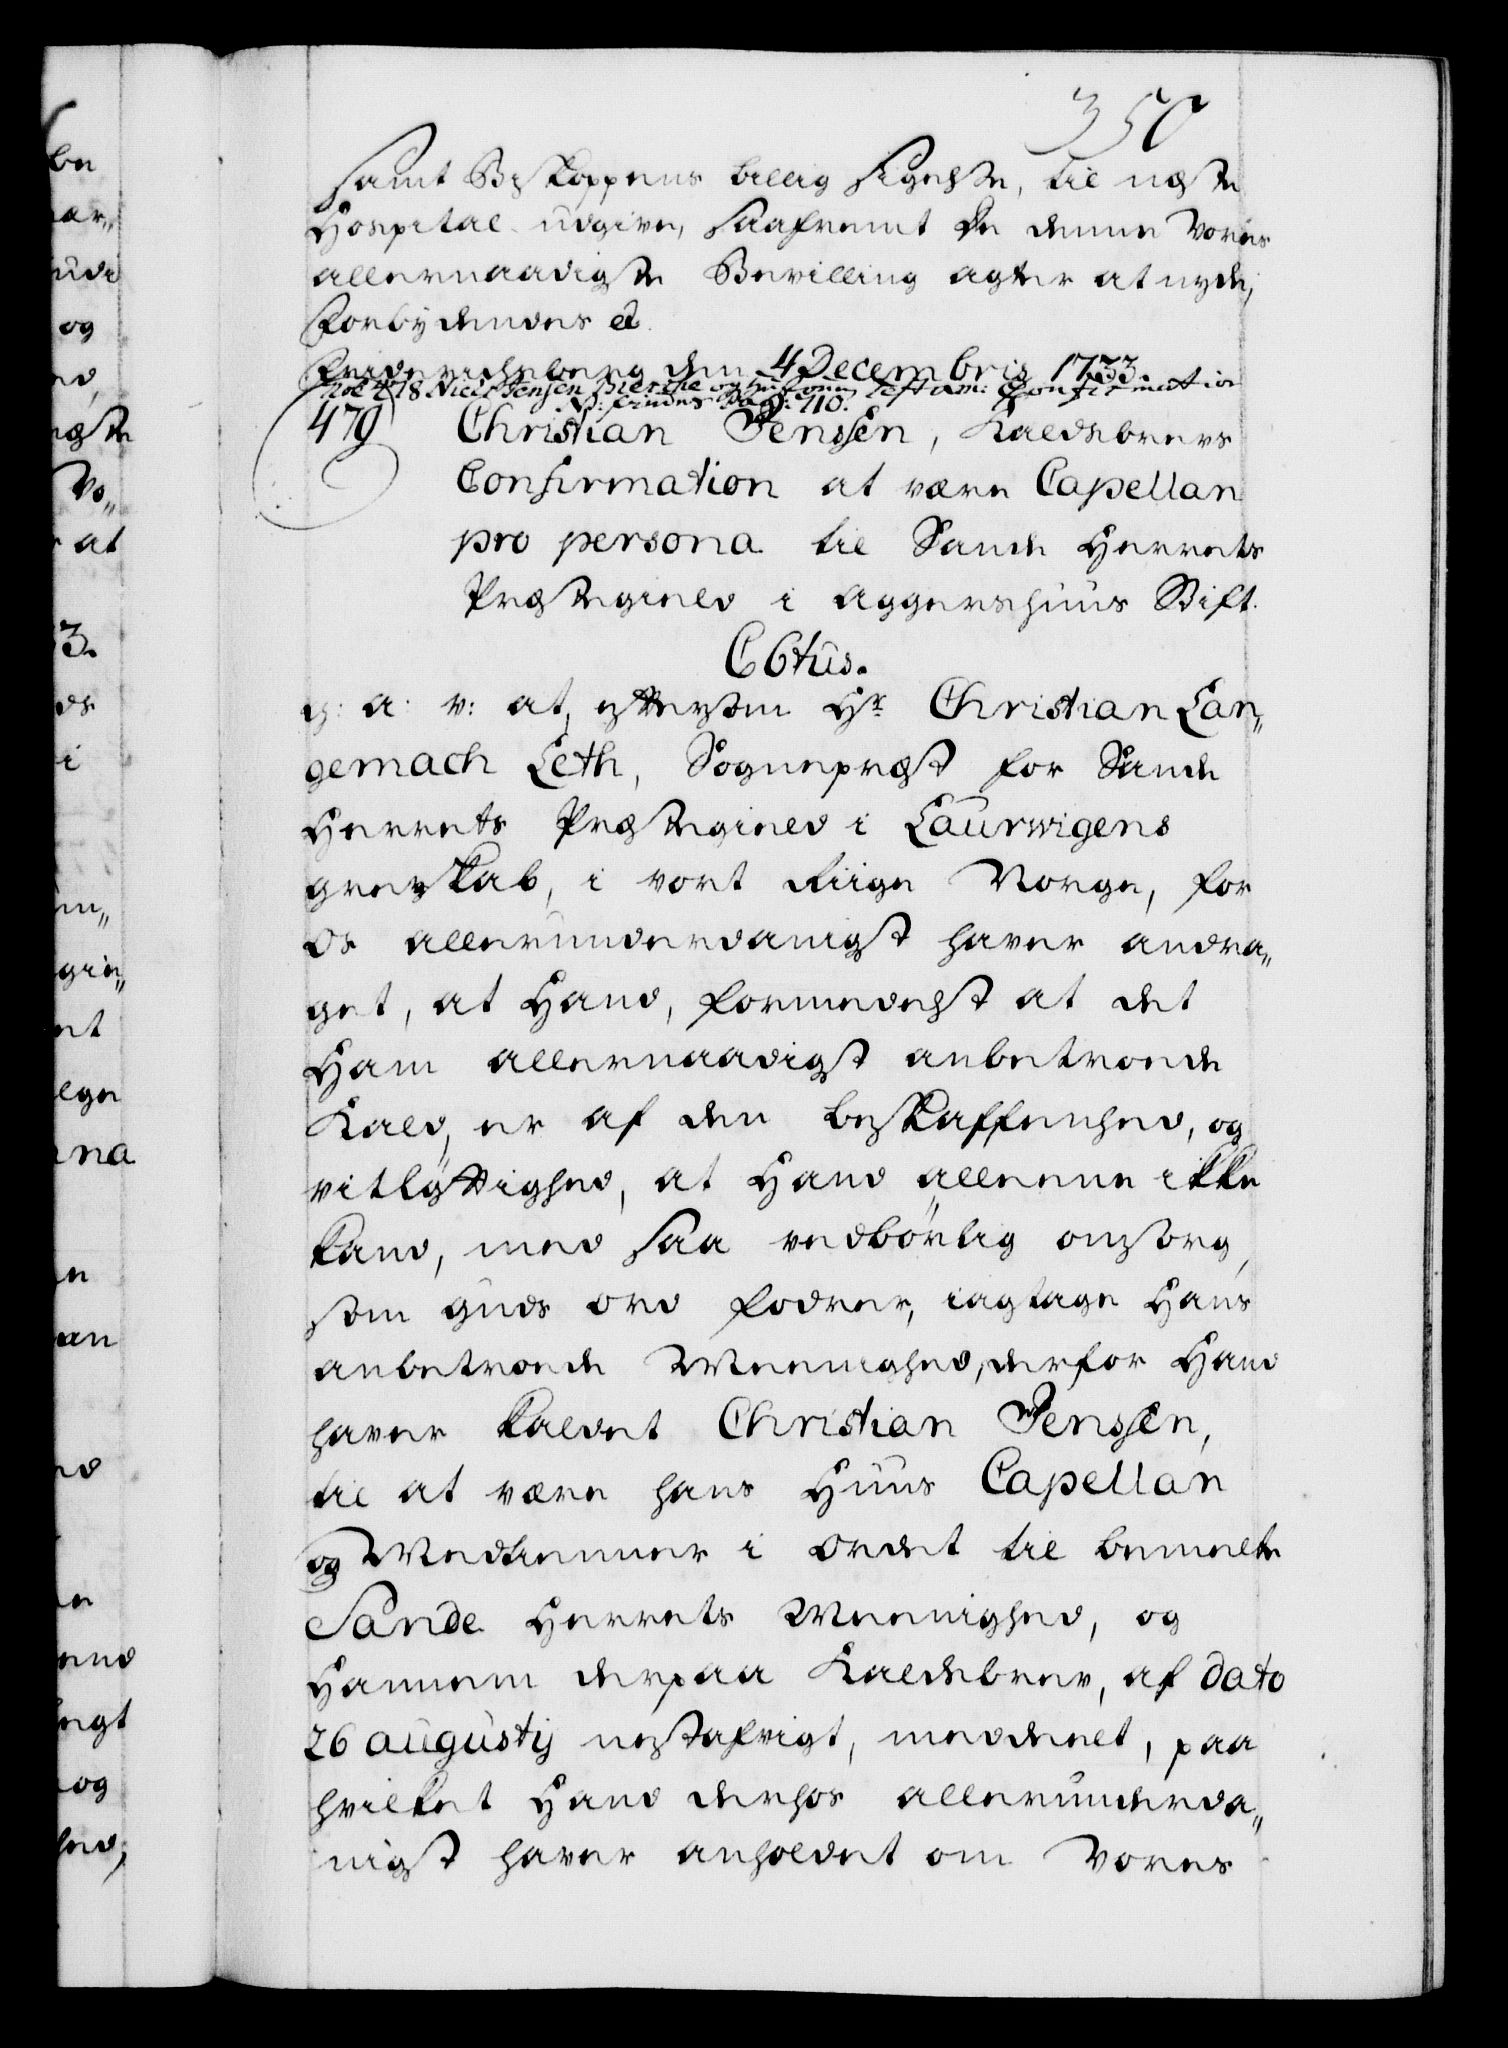 350
samt Biskoppens billig sigelse, til næste
Hospital udgive, saafremt de denne Vores
allernaadigste Bevilling agter at nyde,
Forbydendes etc.
Friderichsberg den 4 Decembris 1733
No: 478 Niels Jensen Bierche og hustrues Testam: Confirmation
NB: findes Pag: 710.
479 Christian Jenssen, Kaldsbrevs
Confirmation at være Capellan
pro persona til Sande Herrets
Præstegield i Aggershuus Stift.
C6tus.
g: a: v: at, eftersom Hr Christian Lan„
gemach Leth, Sognepræst for Sande
Herrets Præstegield i Laurwigens
grevskab, i vort Riige Norge, for
os allerunderdanigst haver andra„
get, at Hand, formedelst at det
Ham allernaadigst anbetroede
Kald, er af den beskaffenhed, og
vitløftighed, at Hand alleene ikke
kand, med saa vedbørlig omsorg,
som guds ord fodrer, iagtage Hans
anbetroede Meenighed, derfor Hand
haver kaldet Christian Jenssen,
til at være hans Huus Capellan
og Medtienner i Ordet til bemelte
Sande Herrets Meenighed, og
Hannem derpaa Kaldsbrev, af dato
26 augustij nestafvigt, meddeelt, paa
hvilket Hand derhos allerunderda„
nigst haver anholdet om Vores